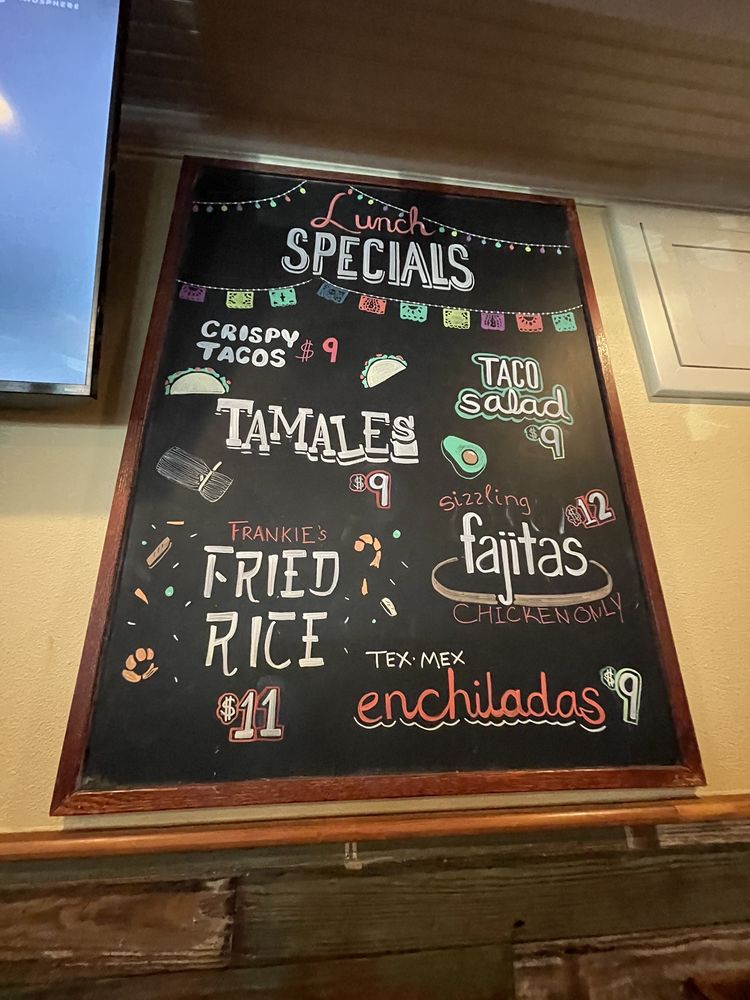 Lunch
SPECIALS
CRISPY
TACOS $9
TACO
salad
$9
TAMALES
$9
sizzling $12
fajitas
CHICKEN ONLY
FRANKIE'S
FRIED
RICE
$11
TEX·MEX
enchiladas $9